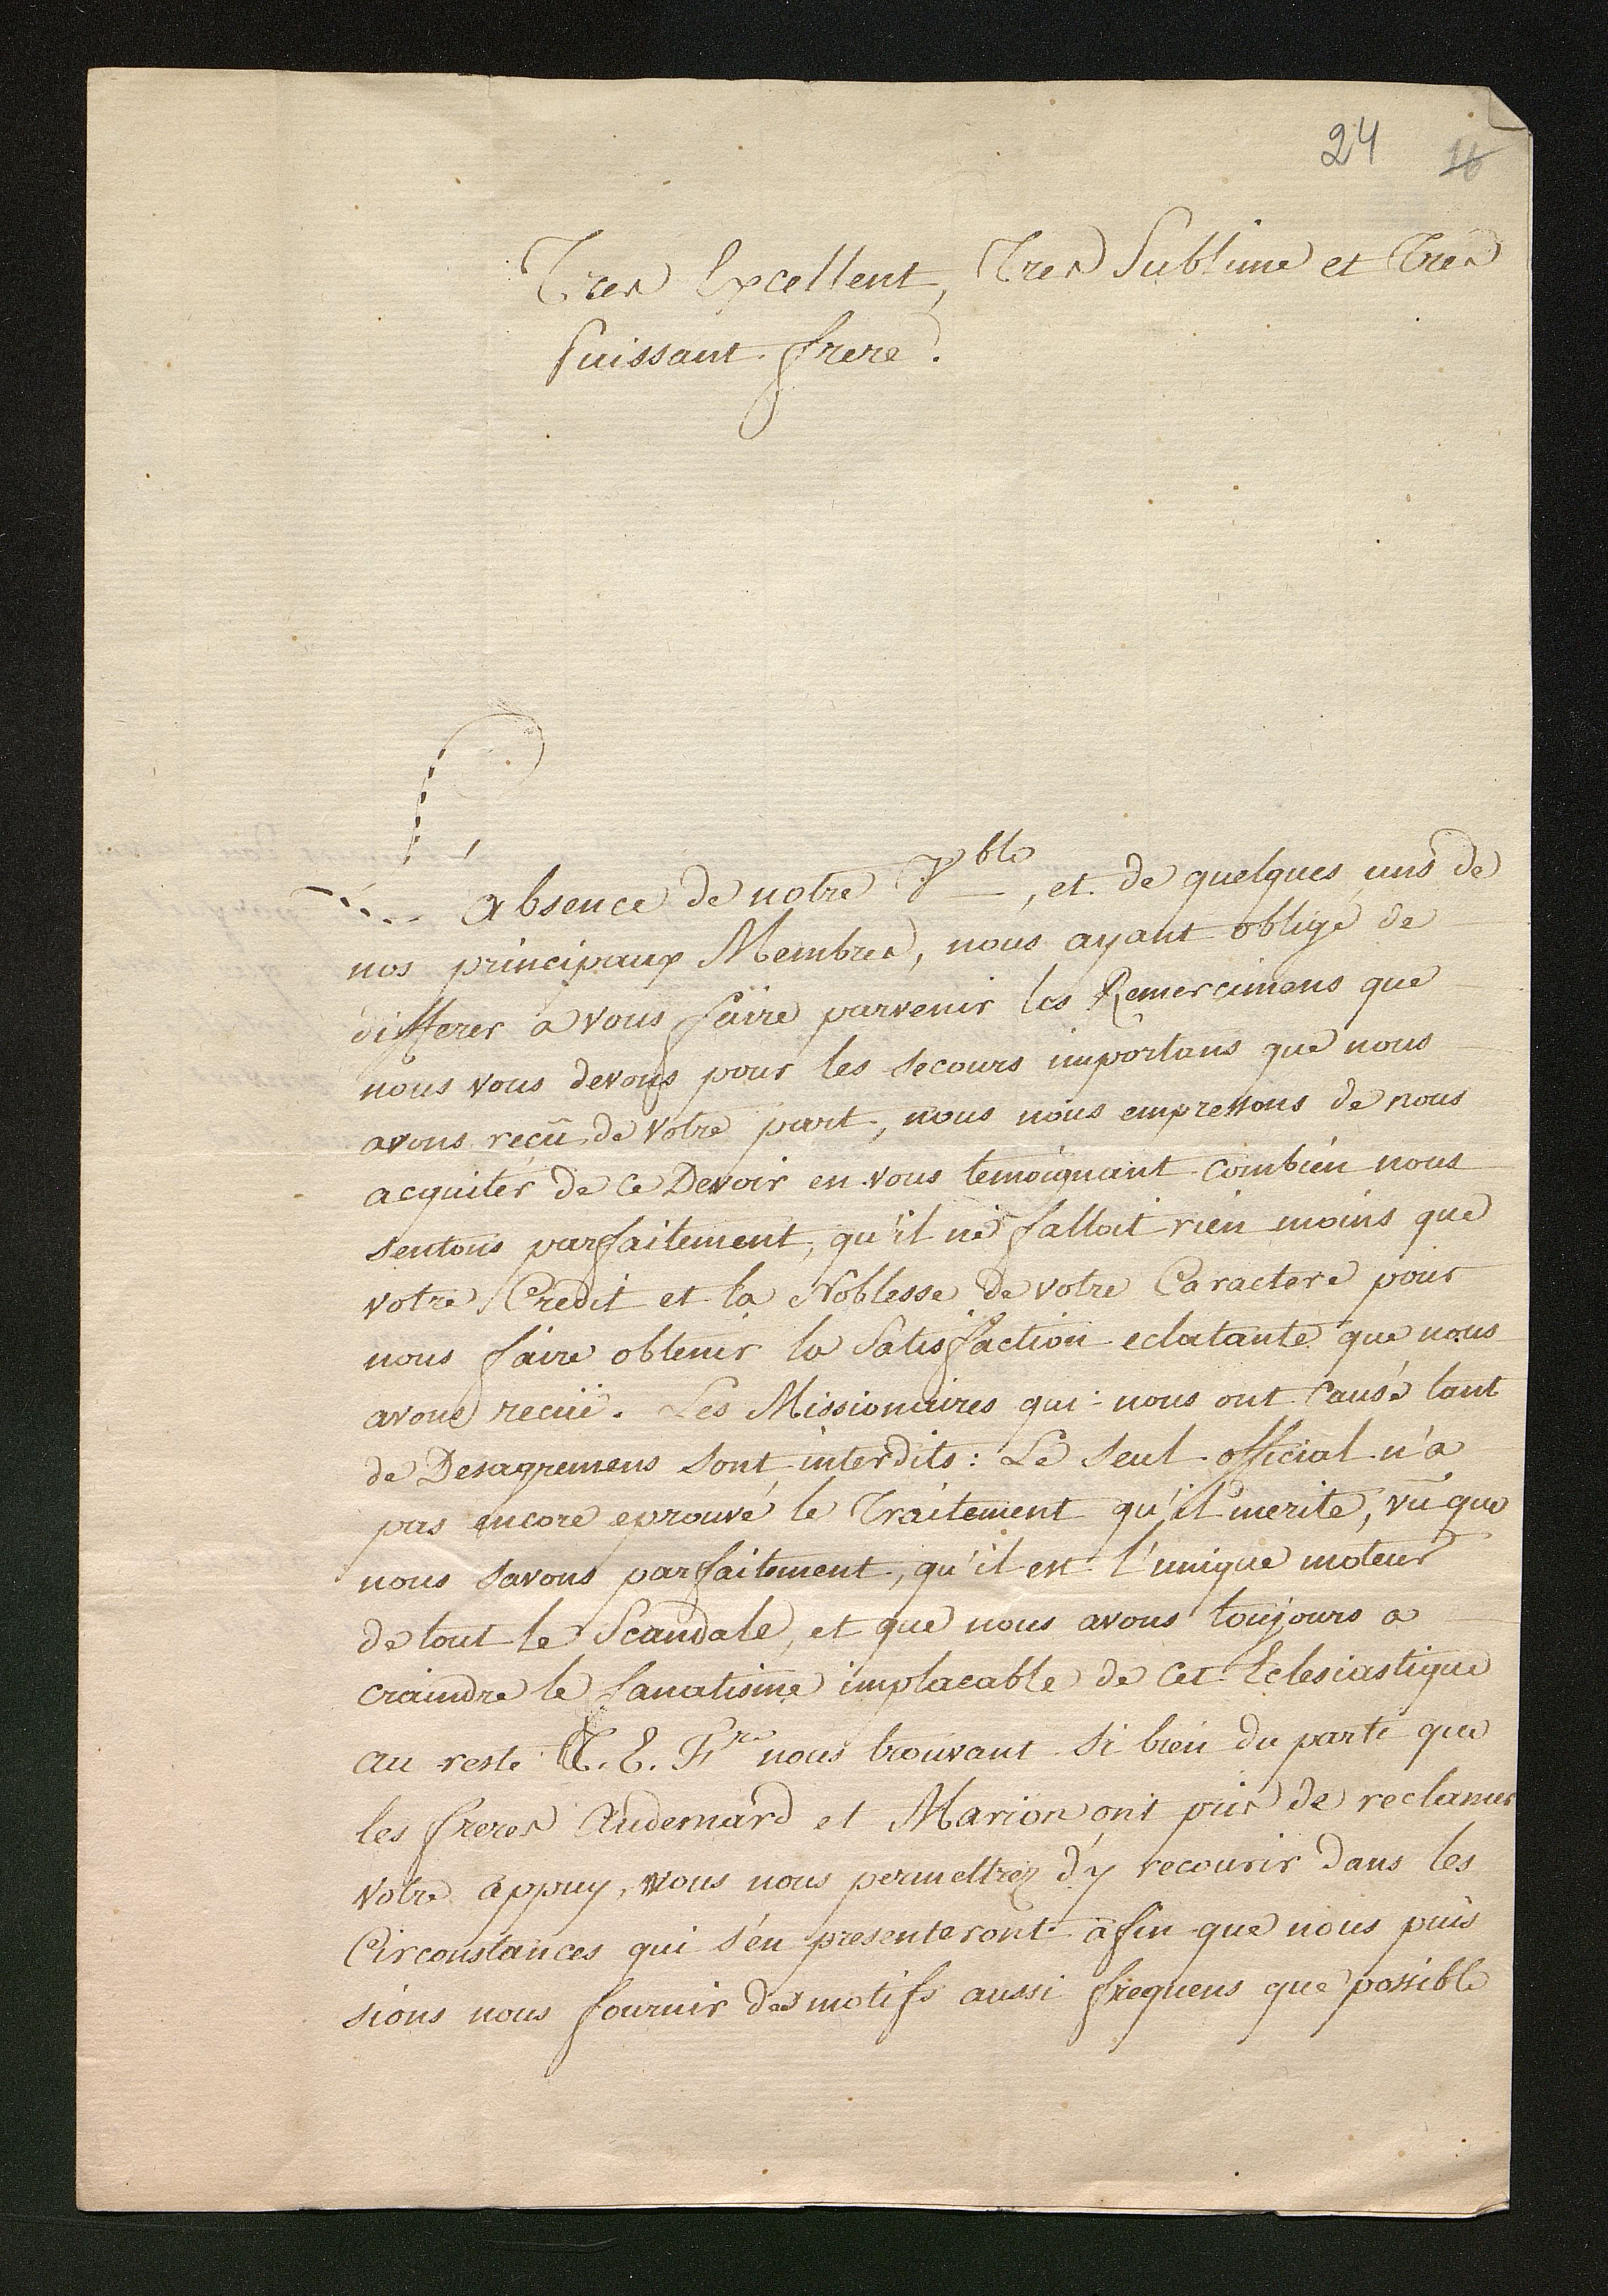 24 16
Tres Excellent, Tres Sublime et Tres
Puissant frere.
L'absence de notre Vble, et de quelques uns de
nos principaux Membres, nous ayant obligé de
differer a vous faire parvenir les Remercimens que
nous vous devons pour les secours importans que nous
avons reçû de votre part, nous nous empressons de nous
acquiter de ce Devoir en vous temoignant combien nous
sentons parfaitement, qu'il ne falloit rien moins que
votre Credit et la Noblesse de votre Caractere pour
nous faire obtenir la Satisfaction eclatante que nous
avons recüe. Les Missionaires qui nous ont causé tant
de Desagremens sont interdits: Le seul official n'a
pas encore eprouvé le Traitement qu'il merite, vû que
nous savons parfaitement, qu'il est l'unique moteur
de tout le Scandale, et que nous avons toujours a
craindre le fanatisme implacable de cet Eclesiastique
au reste T. E. Fre nous trouvant si bien du parti que
les freres Audemard et Marion ont pris de reclamer
votre appuy, vous nous permettrez d'y recourir dans les
Circonstances qui s'en presenteront afin que nous puis
sions nous fournir des motifs aussi frequens que possible